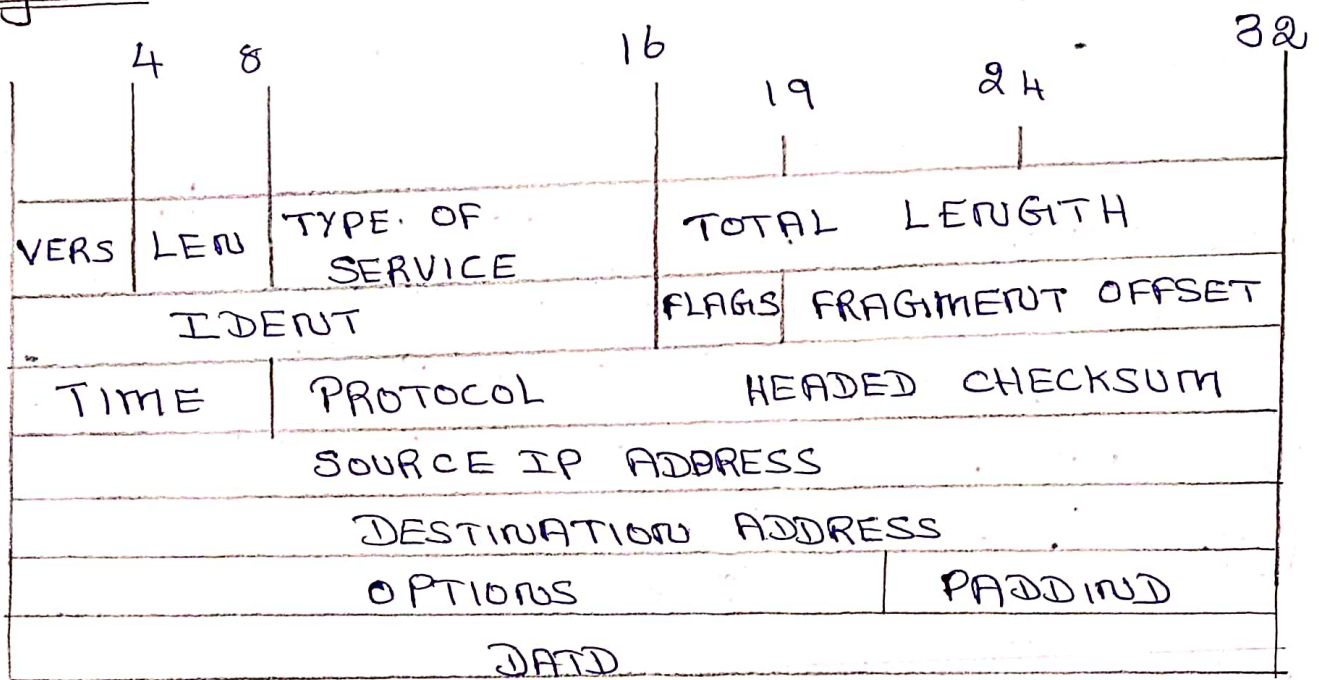 4 8 16 32
19 24
VERS LEN TYPE. OF SERVICE TOTAL LENGTH
IDENT FLAGS FRAGMENT OFFSET
TIME PROTOCOL HEADED CHECKSUM
SOURCE IP ADDRESS
DESTINATION ADDRESS
OPTIONS PADDIND
DATD